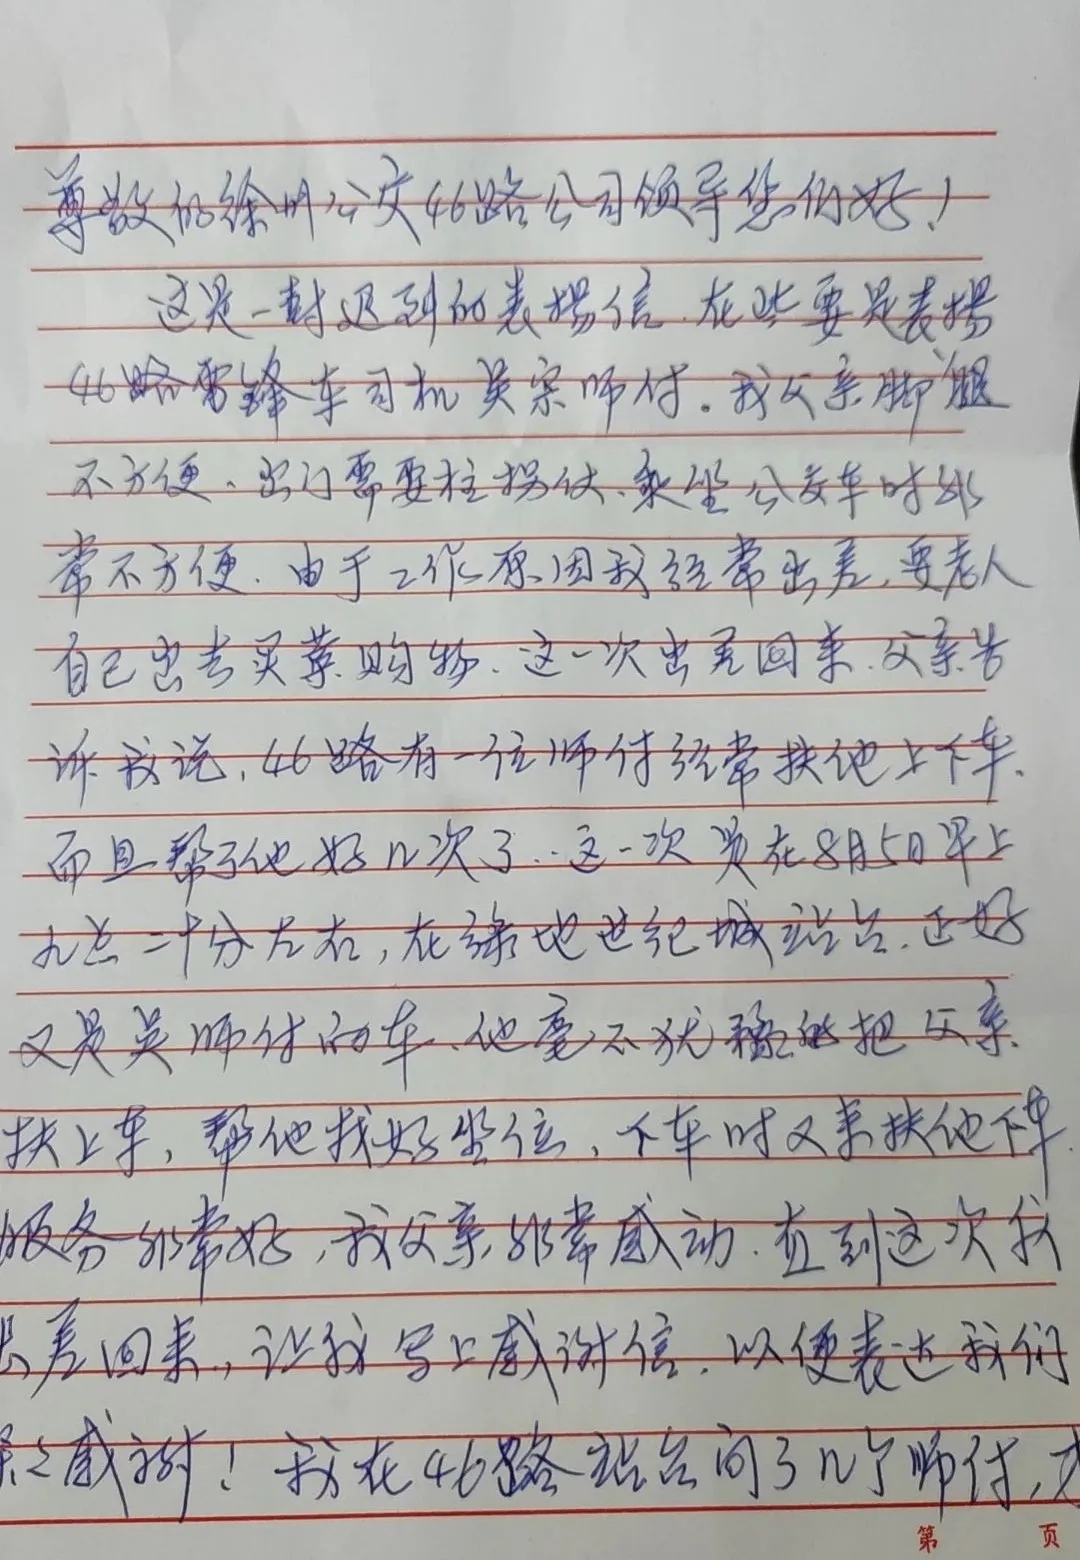 尊敬的徐州公交46路公司领导您们好！
这是一封迟到的表揚信.在些要是表揚
46路雷锋车司机吴宗师付。我父亲脚腿
不方便、出门需要柱拐仗、乘坐公交车时非
常不方便.由于工作原因我经常出差,要老人
自己出去买菜购物.这一次出差回来.父亲告
诉我说,46路有一位师付经常扶他上下车、
而且帮了他好几次了..这一次是在8月5日早上
九点二十分左右,在绿地世纪城站台.正好
又是吴师付的车、他毫不犹豫的把父亲
扶上车,帮他找好坐位,下车时又来扶他下车.
服务非常好,我父亲非常感动.直到这次我
出差回来,让我写上感谢信.以便表达我们
深之感谢！我在46路站台问了几个师付,才
第 页